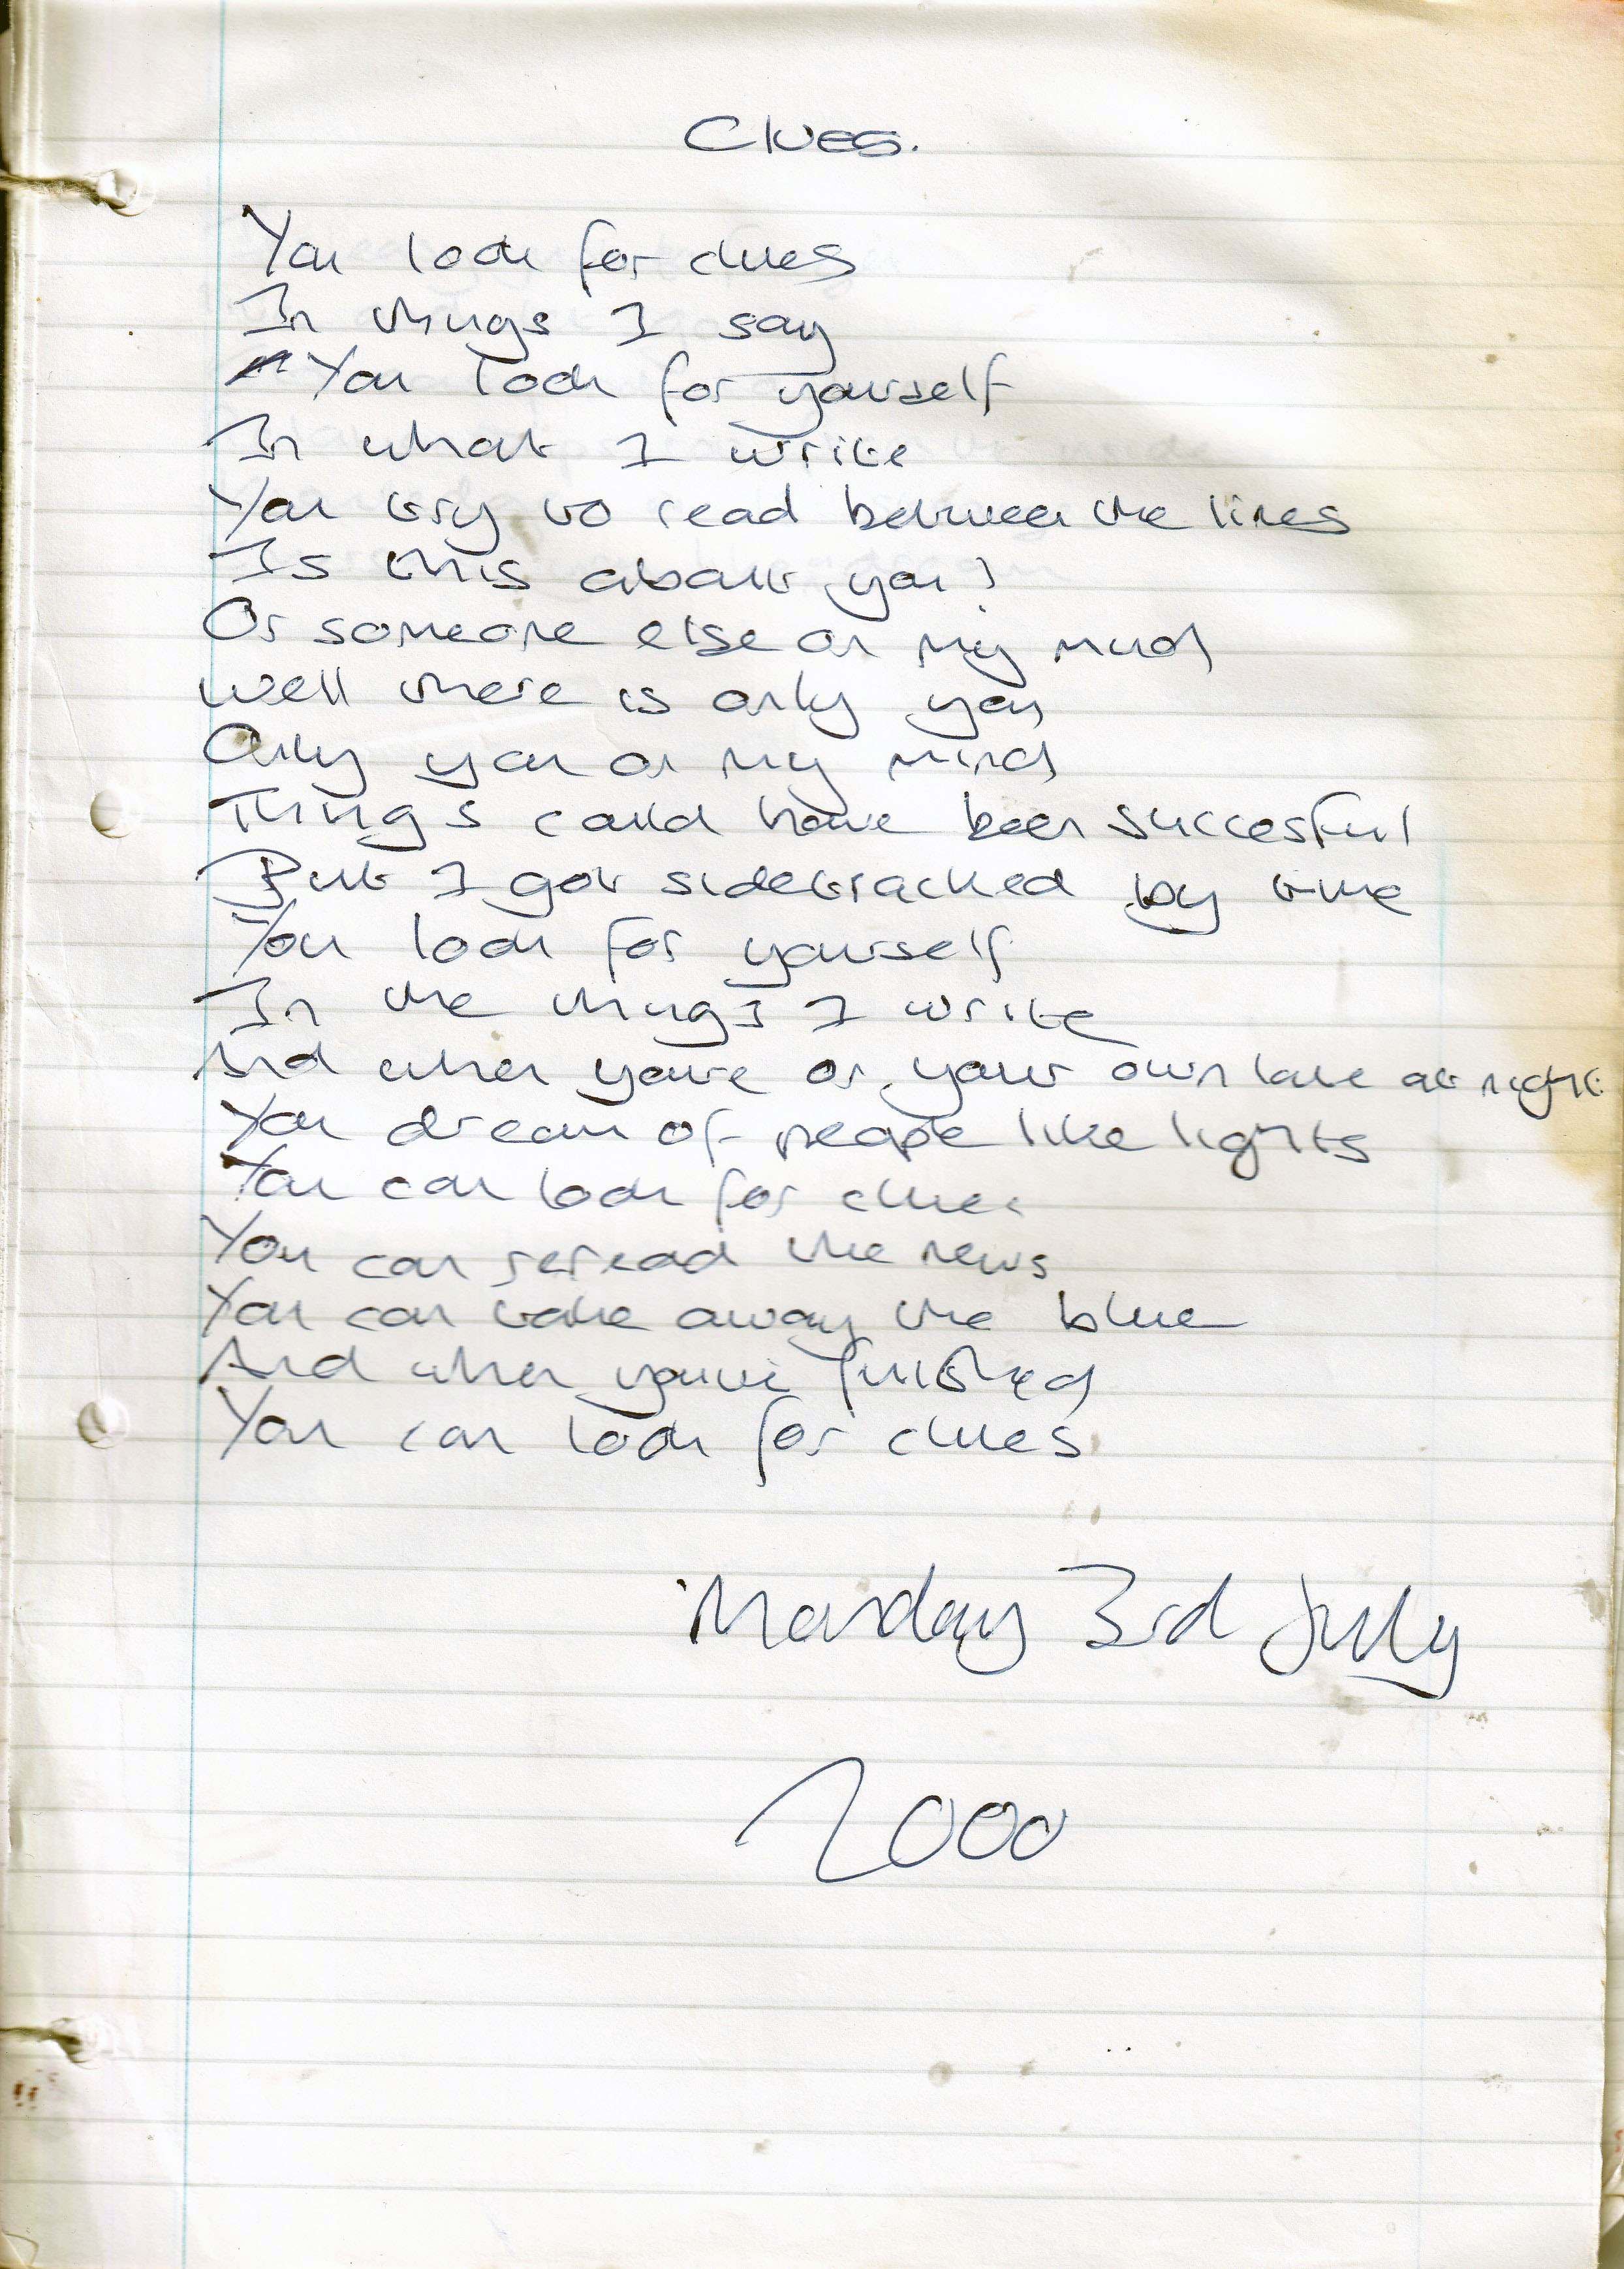 Clues.
You look for clues
In things I say
You look for yourself
In what I write
You try to read between the lines
Is this about you?
Or someone else on my mind
Well there is only you
Only you on my mind
Things could have been succesful
But I got sidetracked by time
You look for yourself
In the things I write
And when youre on your own late at night
You dream of people like lights
You can look for clues
You can reread the news
You can take away the blue
And when youve finished
You can look for clues
Monday 3rd July
2000